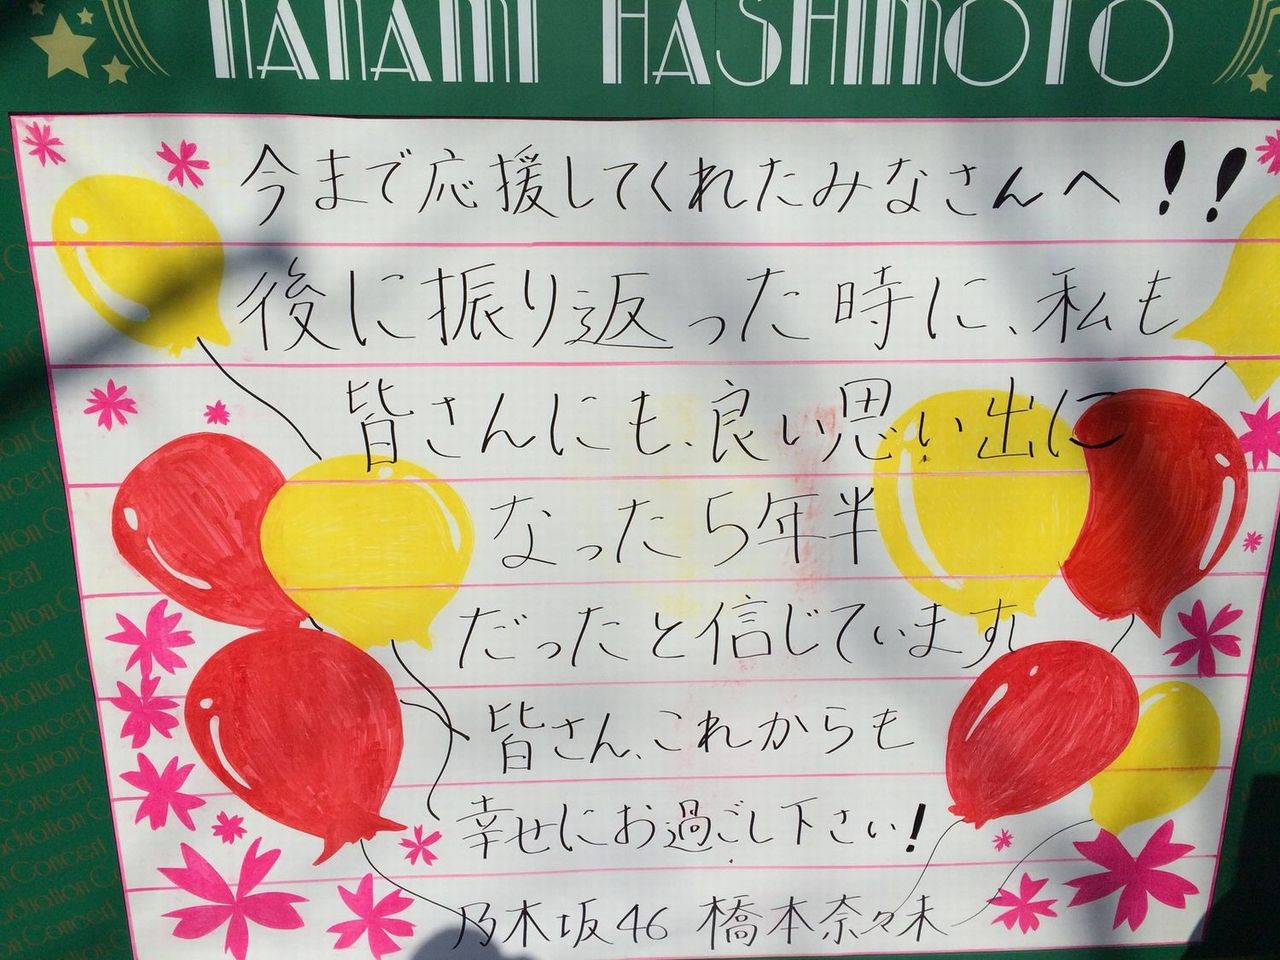 NANAMI HASHIMOTO
今まで応援してくれたみなさんへ!!
後に振り返った時に、私も
皆さんにも、良い思い出に
なった5年半
だったと信じています
皆さん、これからも
幸せにお過ごし下さい!
乃木坂46 橋本奈々未